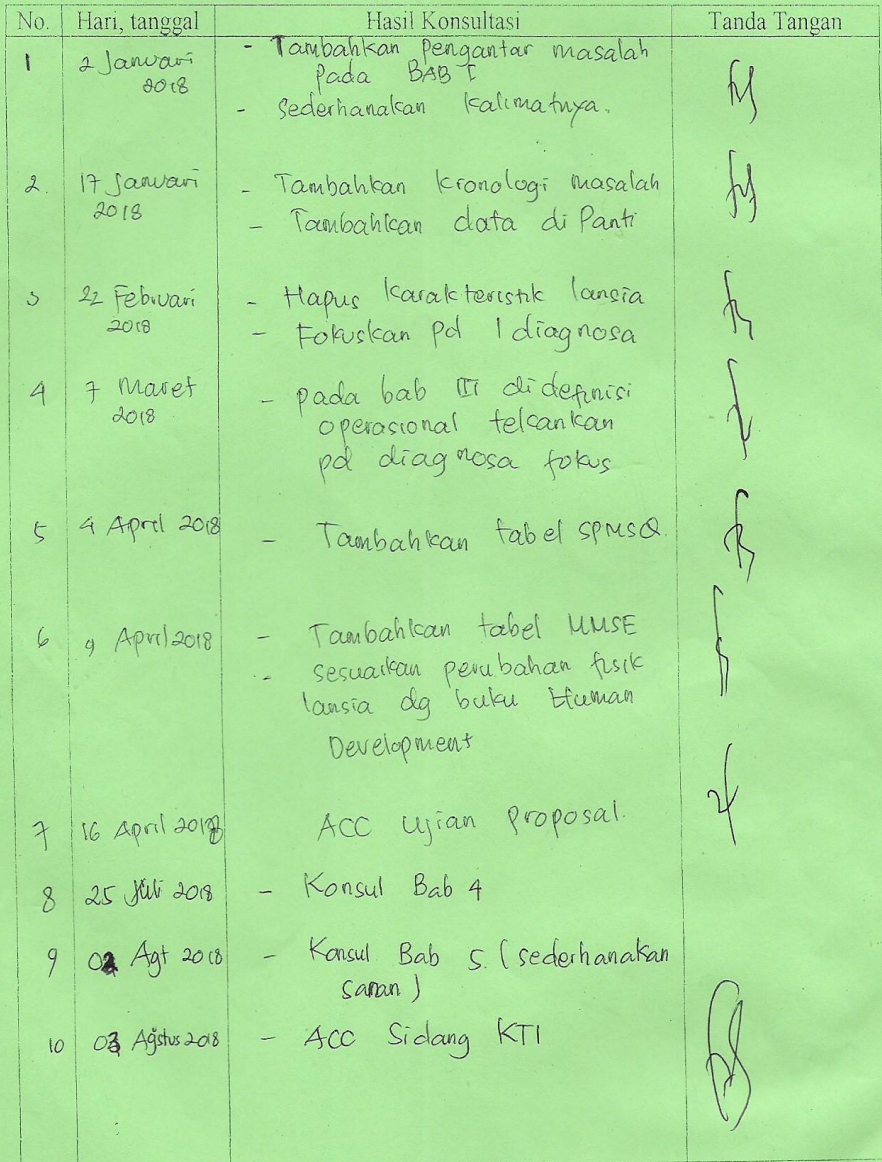 No. Hari, tanggal Hasil Konsultasi Tanda Tangan
1 2 Januari - Tambahkan pengantar masalah
2018 pada BAB I
- Sederhanakan kalimatnya.
2. 17 Januari - Tambahkan kronologi masalah
2018 - Tambahkan data di Panti
3 22 Februari - Hapus karakteristik lansia
2018 - Fokuskan pd 1 diagnosa
4 7 Maret - pada bab III di definisi
2018 operasional tekankan
pd diagnosa fokus
5 4 April 2018 - Tambahkan tabel SPMSQ.
6 9 April 2018 - Tambahkan tabel MMSE
- sesuaikan perubahan fisik
lansia dg buku Human
Development
7 16 April 2018 ACC Ujian Proposal.
8 25 Juli 2018 - Konsul Bab 4
9 02 Agt 2018 - Konsul Bab 5. (sederhanakan
saran)
10 03 Agstus 2018 - ACC Sidang KTI